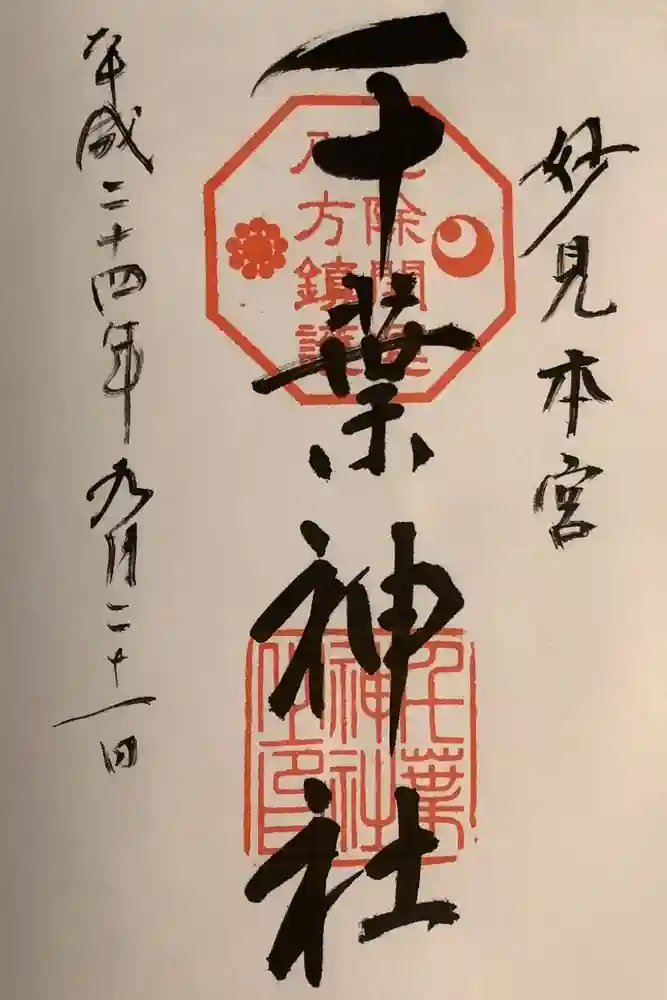 妙見本宮
千葉神社
平成二十四年九月二十一日
除開運
八方鎮護
千葉
神社
之印